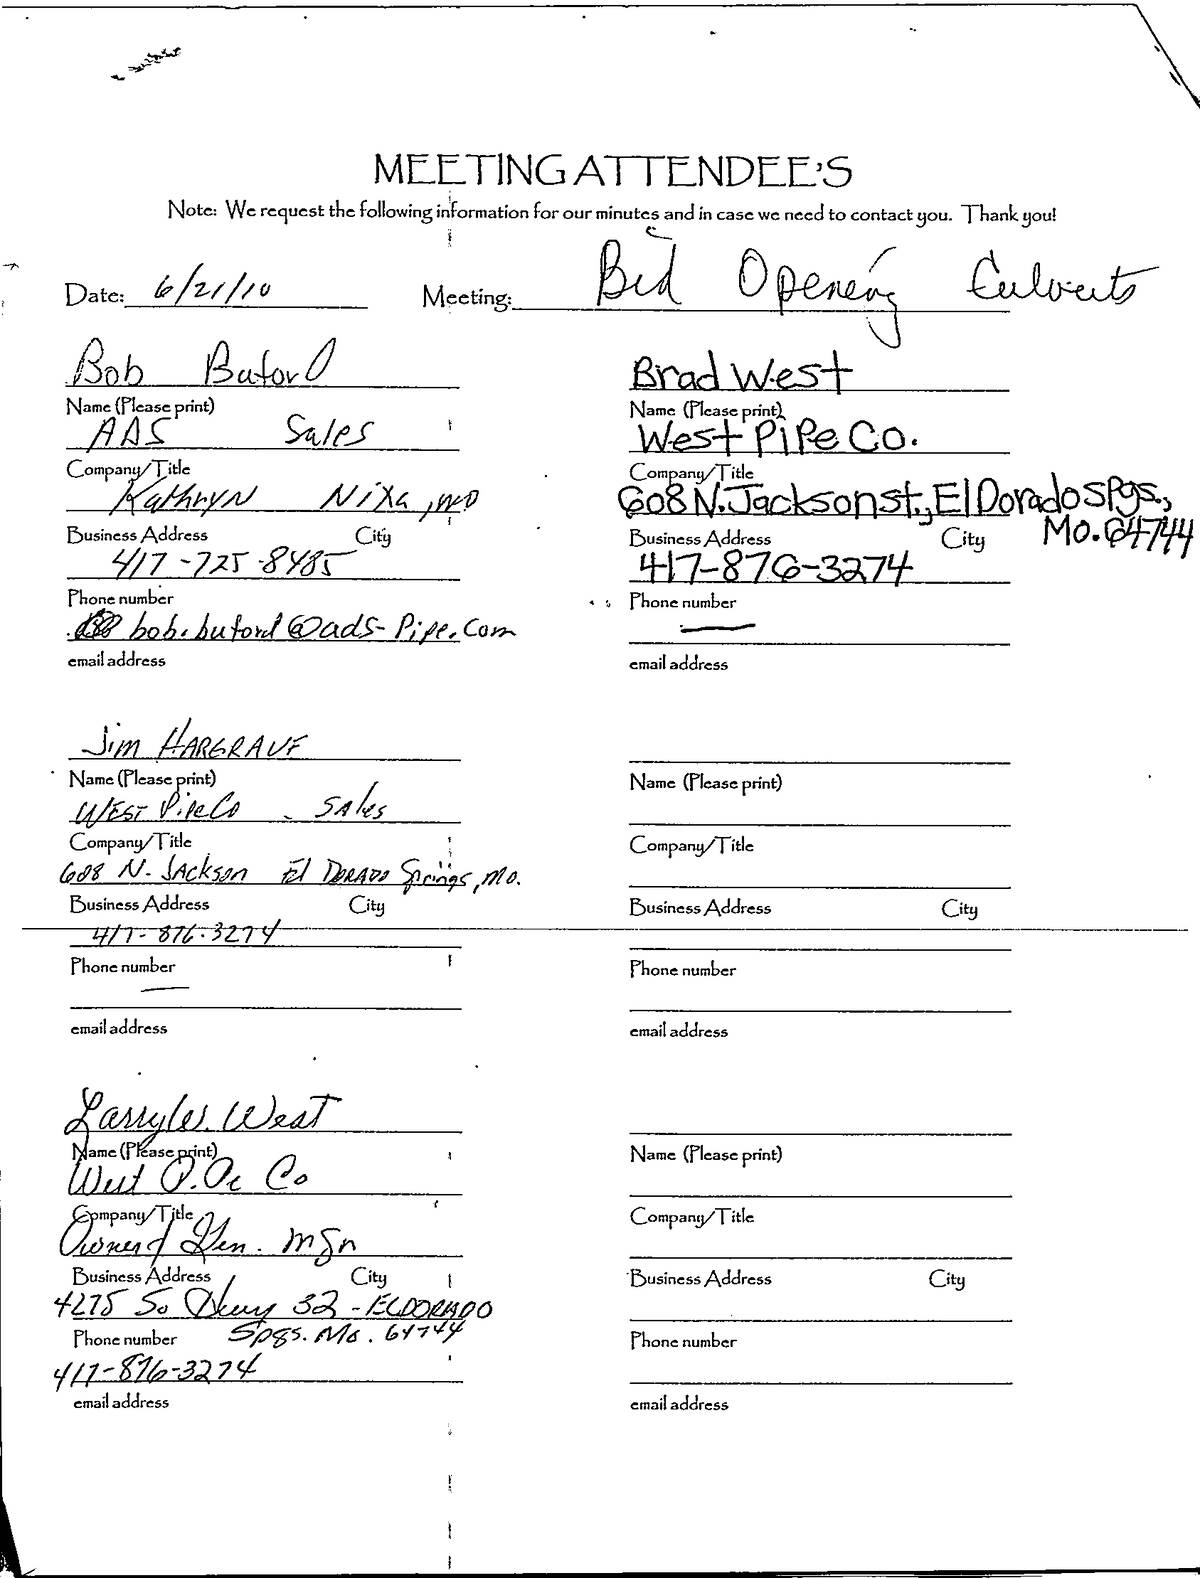 MEETING ATTENDEE'S
Note: We request the following information for our minutes and in case we need to contact you. Thank you!
Date: 6/21/10 Meeting: Bid Opening Culverts
Bob Buford
Name (Please print)
ADS Sales
Company/Title
Kathryn Nixa, MO
Business Address City
417-725-8485
Phone number
bob.buford@ads-pipe.com
email address
Brad West
Name (Please print)
West Pipe Co.
Company/Title
608 N. Jackson st., El Dorado Spgs.,
Mo. 64744
Business Address City
417-876-3274
Phone number
email address
Jim HARGRAVE
Name (Please print)
WEST PipeCo - SAles
Company/Title
608 N. JACKson El DORADO Springs, Mo.
Business Address City
417-876-3274
Phone number
email address
Name (Please print)
Company/Title
Business Address City
Phone number
email address
Larry W. West
Name (Please print)
West Pipe Co
Company/Title
Owner / Gen. Mgr
Business Address City
4275 So Hwy 32 - ELDORADO
Phone number Spgs. Mo. 64744
417-876-3274
email address
Name (Please print)
Company/Title
Business Address City
Phone number
email address